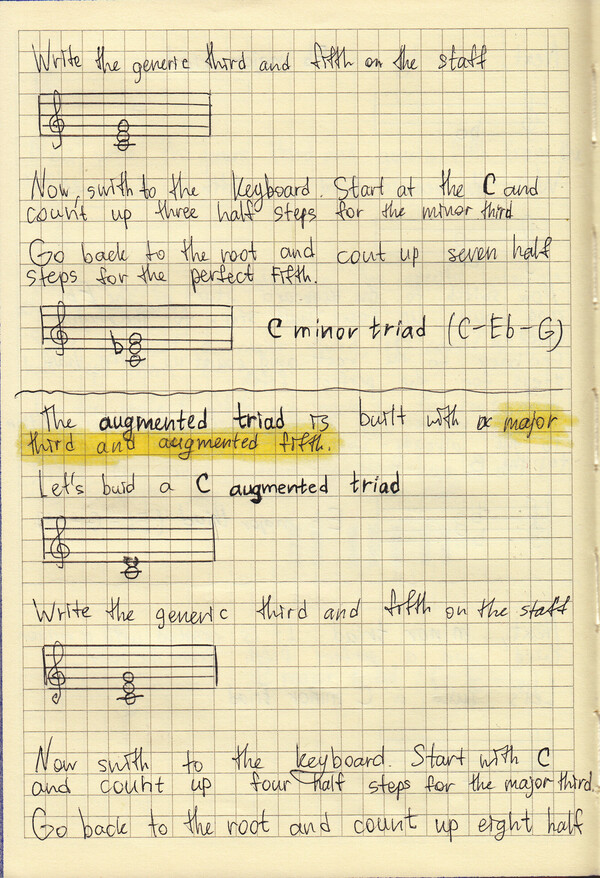 Write the generic third and fifth on the staff
Now, swith to the keyboard. Start at the C and
count up three half steps for the minor third
Go back to the root and cout up seven half
steps for the perfect fifth.
b
C minor triad (C-Eb-G)
The augmented triad is built with a major
third and augmented fifth.
Let's buid a C augmented triad
Write the generic third and fifth on the staff
Now swith to the keyboard. Start with C
and count up four half steps for the major third.
Go back to the root and count up eight half